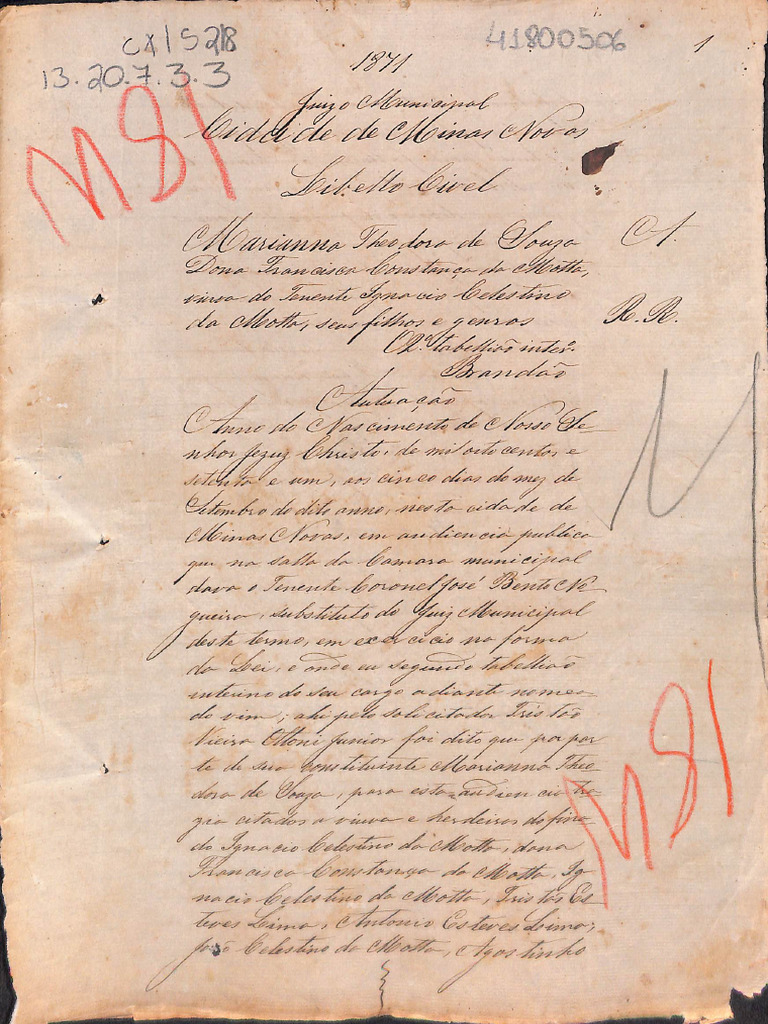 CX/5218
41800506
1
13.20.7.3.3
1871
M81
Juizo Municipal
Cidade de Minas Novas
Libello Civel
Marianna Theodora de Souza A.
Dona Francisca Constança da Motta,
viuva do Tenente Ignacio Celestino
da Motta, seus filhos e genros R.R.
O 2º tabellião interº
Brandão
Autuação
Anno do Nascimento de Nosso Se-
nhor Jezuz Christo, de mil oito centos e
setenta e um, aos cinco dias do mez de
Setembro do dito anno, nesta cidade de
Minas Novas, em audiencia publica
que na salla da Camara municipal
dava o Tenente Coronel José Bento No-
gueira, substituto do Juiz Municipal
deste termo, em exercicio na forma
da Lei, e onde eu segundo tabellião
interino do seu cargo adiante nomea-
do vim; ahi pelo solicitador Tristão
Vieira Ottoni Junior foi dito que por par-
te de sua constituinte Marianna Theo-
dora de Souza, para esta audiencia tra-
zia citados a viuva e herdeiros do fina-
do Ignacio Celestino da Motta, dona
Francisca Constança da Motta, Ig-
nacio Celestino da Motta, Tristão Es-
teves Lima, Antonio Esteves Lima,
João Celestino da Motta, Agostinho
M81